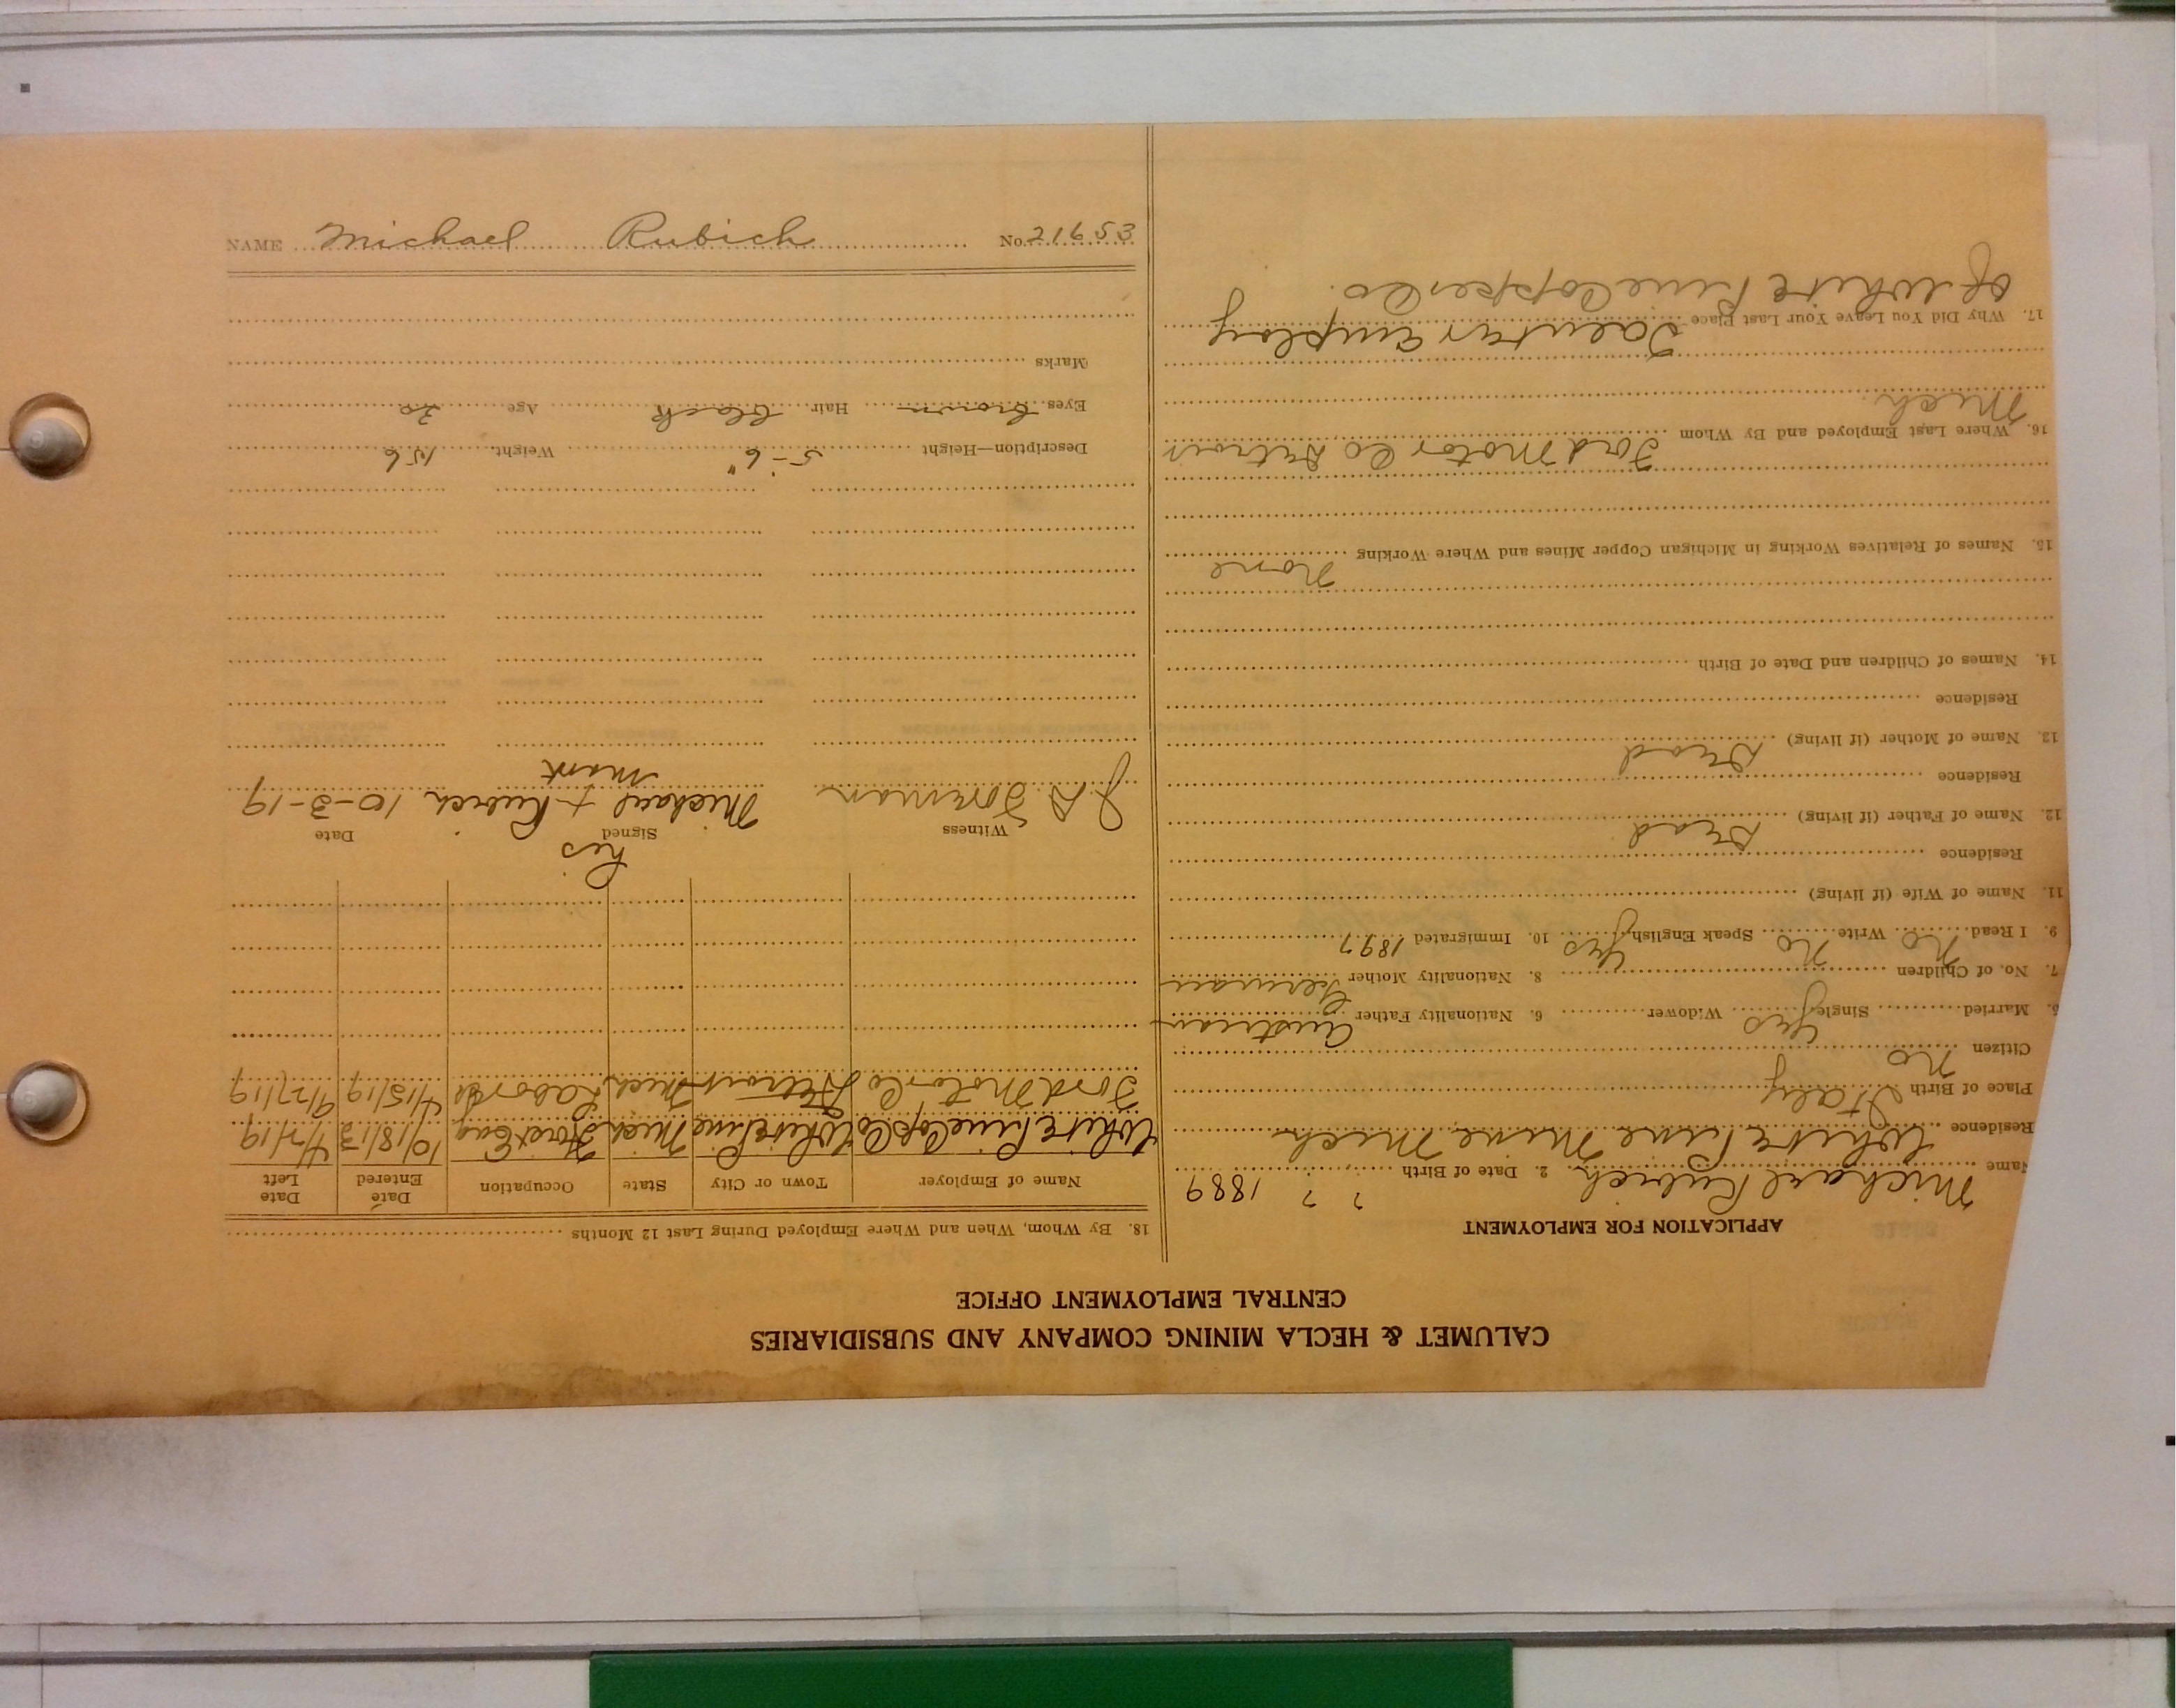 CALUMET & HECLA MINING COMPANY AND SUBSIDIARIES
CENTRAL EMPLOYMENT OFFICE
APPLICATION FOR EMPLOYMENT
Name Michael Rubich 2. Date of Birth ? ? 1889
Residence White Pine Mine Mich
Place of Birth Italy
Citizen No
5. Married Single Yes Widower 6. Nationality Father Austrian
7. No. of Children 8. Nationality Mother German
9. I Read No Write No Speak English Yes 10. Immigrated 1897
11. Name of Wife (if living)
Residence
12. Name of Father (if living) Dead
Residence
13. Name of Mother (if living) Dead
Residence
14. Names of Children and Date of Birth
15. Names of Relatives Working in Michigan Copper Mines and Where Working
None
16. Where Last Employed and By Whom Ford Motor Co Detroit
Mich
17. Why Did You Leave Your Last Place To enter employ
of White Pine Copper Co.
18. By Whom, When and Where Employed During Last 12 Months
Name of Employer Town or City State Occupation Date Entered Date Left
White Pine Cop Co White Pine Mich Hoist Eng 10/18/13 4/7/19
Ford Motor Co Detroit Mich Laborer 4/15/19 9/27/19
Witness Signed Date
his
J. A. Foreman Michael + Rubich 10-3-19
mark
Description—Height 5'-6" Weight 156
Eyes Brown Hair Black Age 30
Marks
NAME Michael Rubich No. 21653